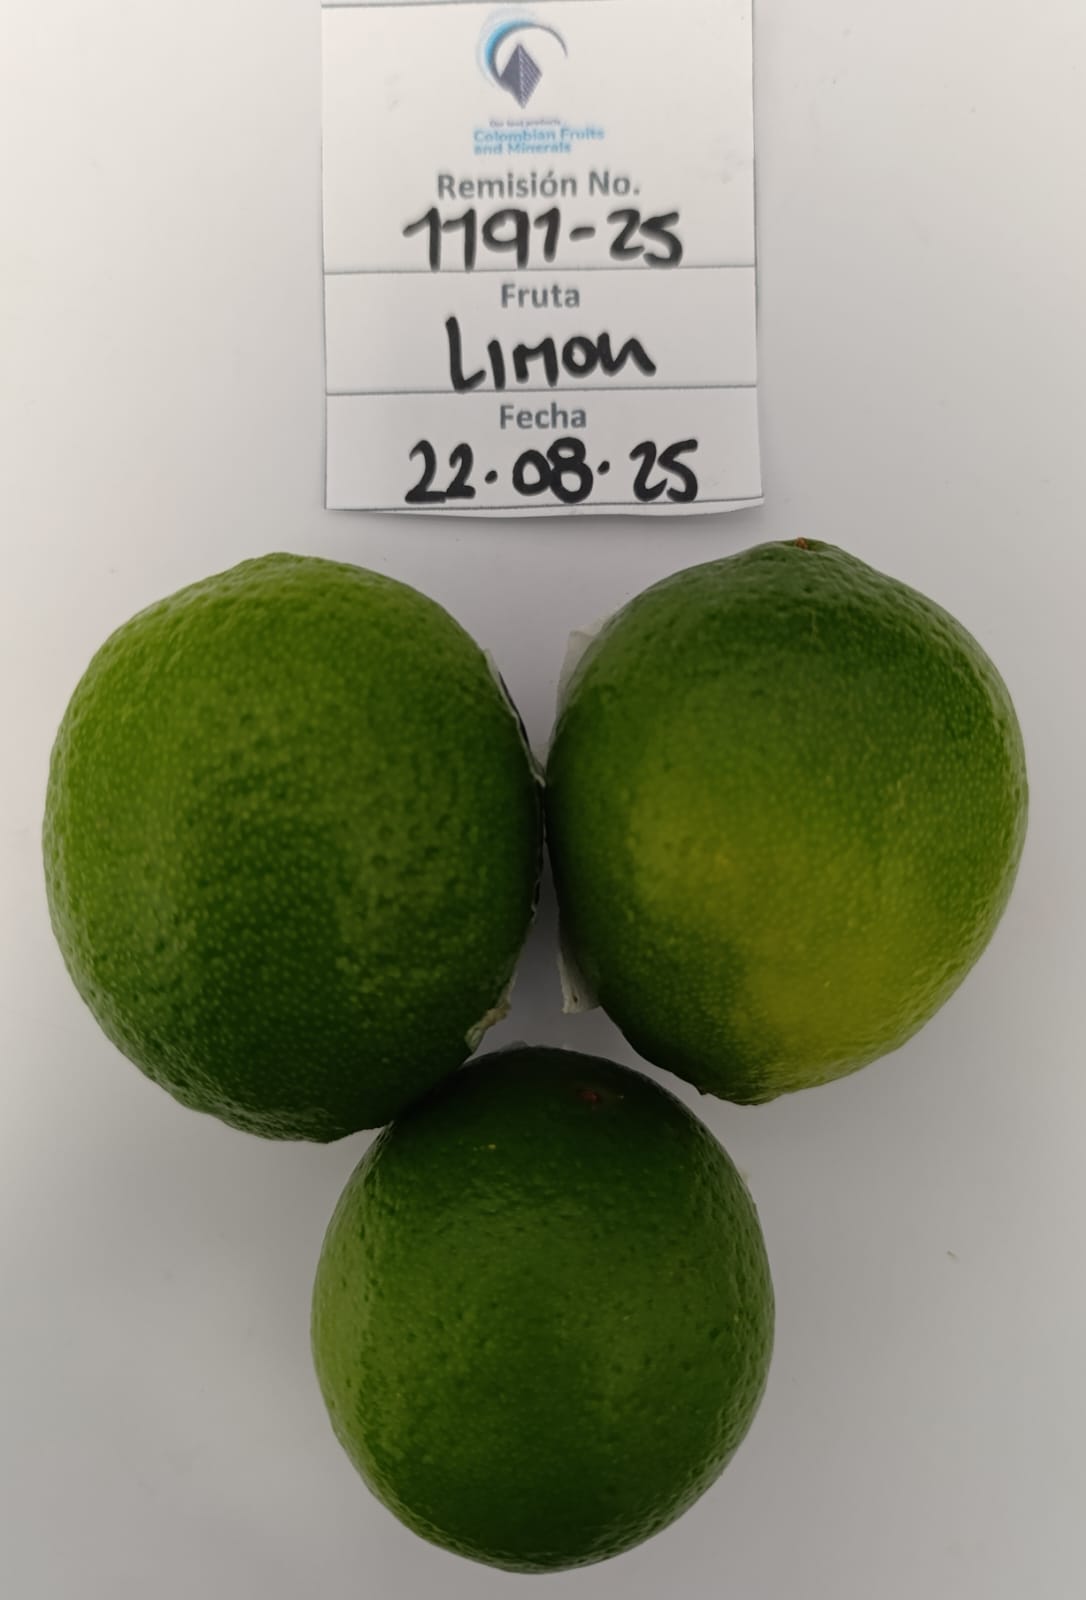 Our best products
Colombian Fruits
and Minerals
Remisión No.
1191-25
Fruta
Limon
Fecha
22.08.25